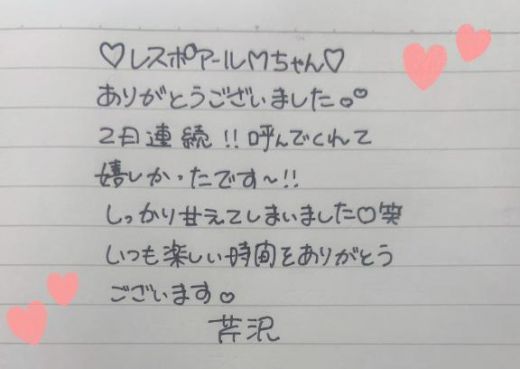 ♡レスポアールMちゃん♡
ありがとうございました。♡
2日連続!!呼んでくれて
嬉しかったです~!!
しっかり甘えてしまいました♡笑
いつも楽しい時間をありがとう
ございます♡
芹沢